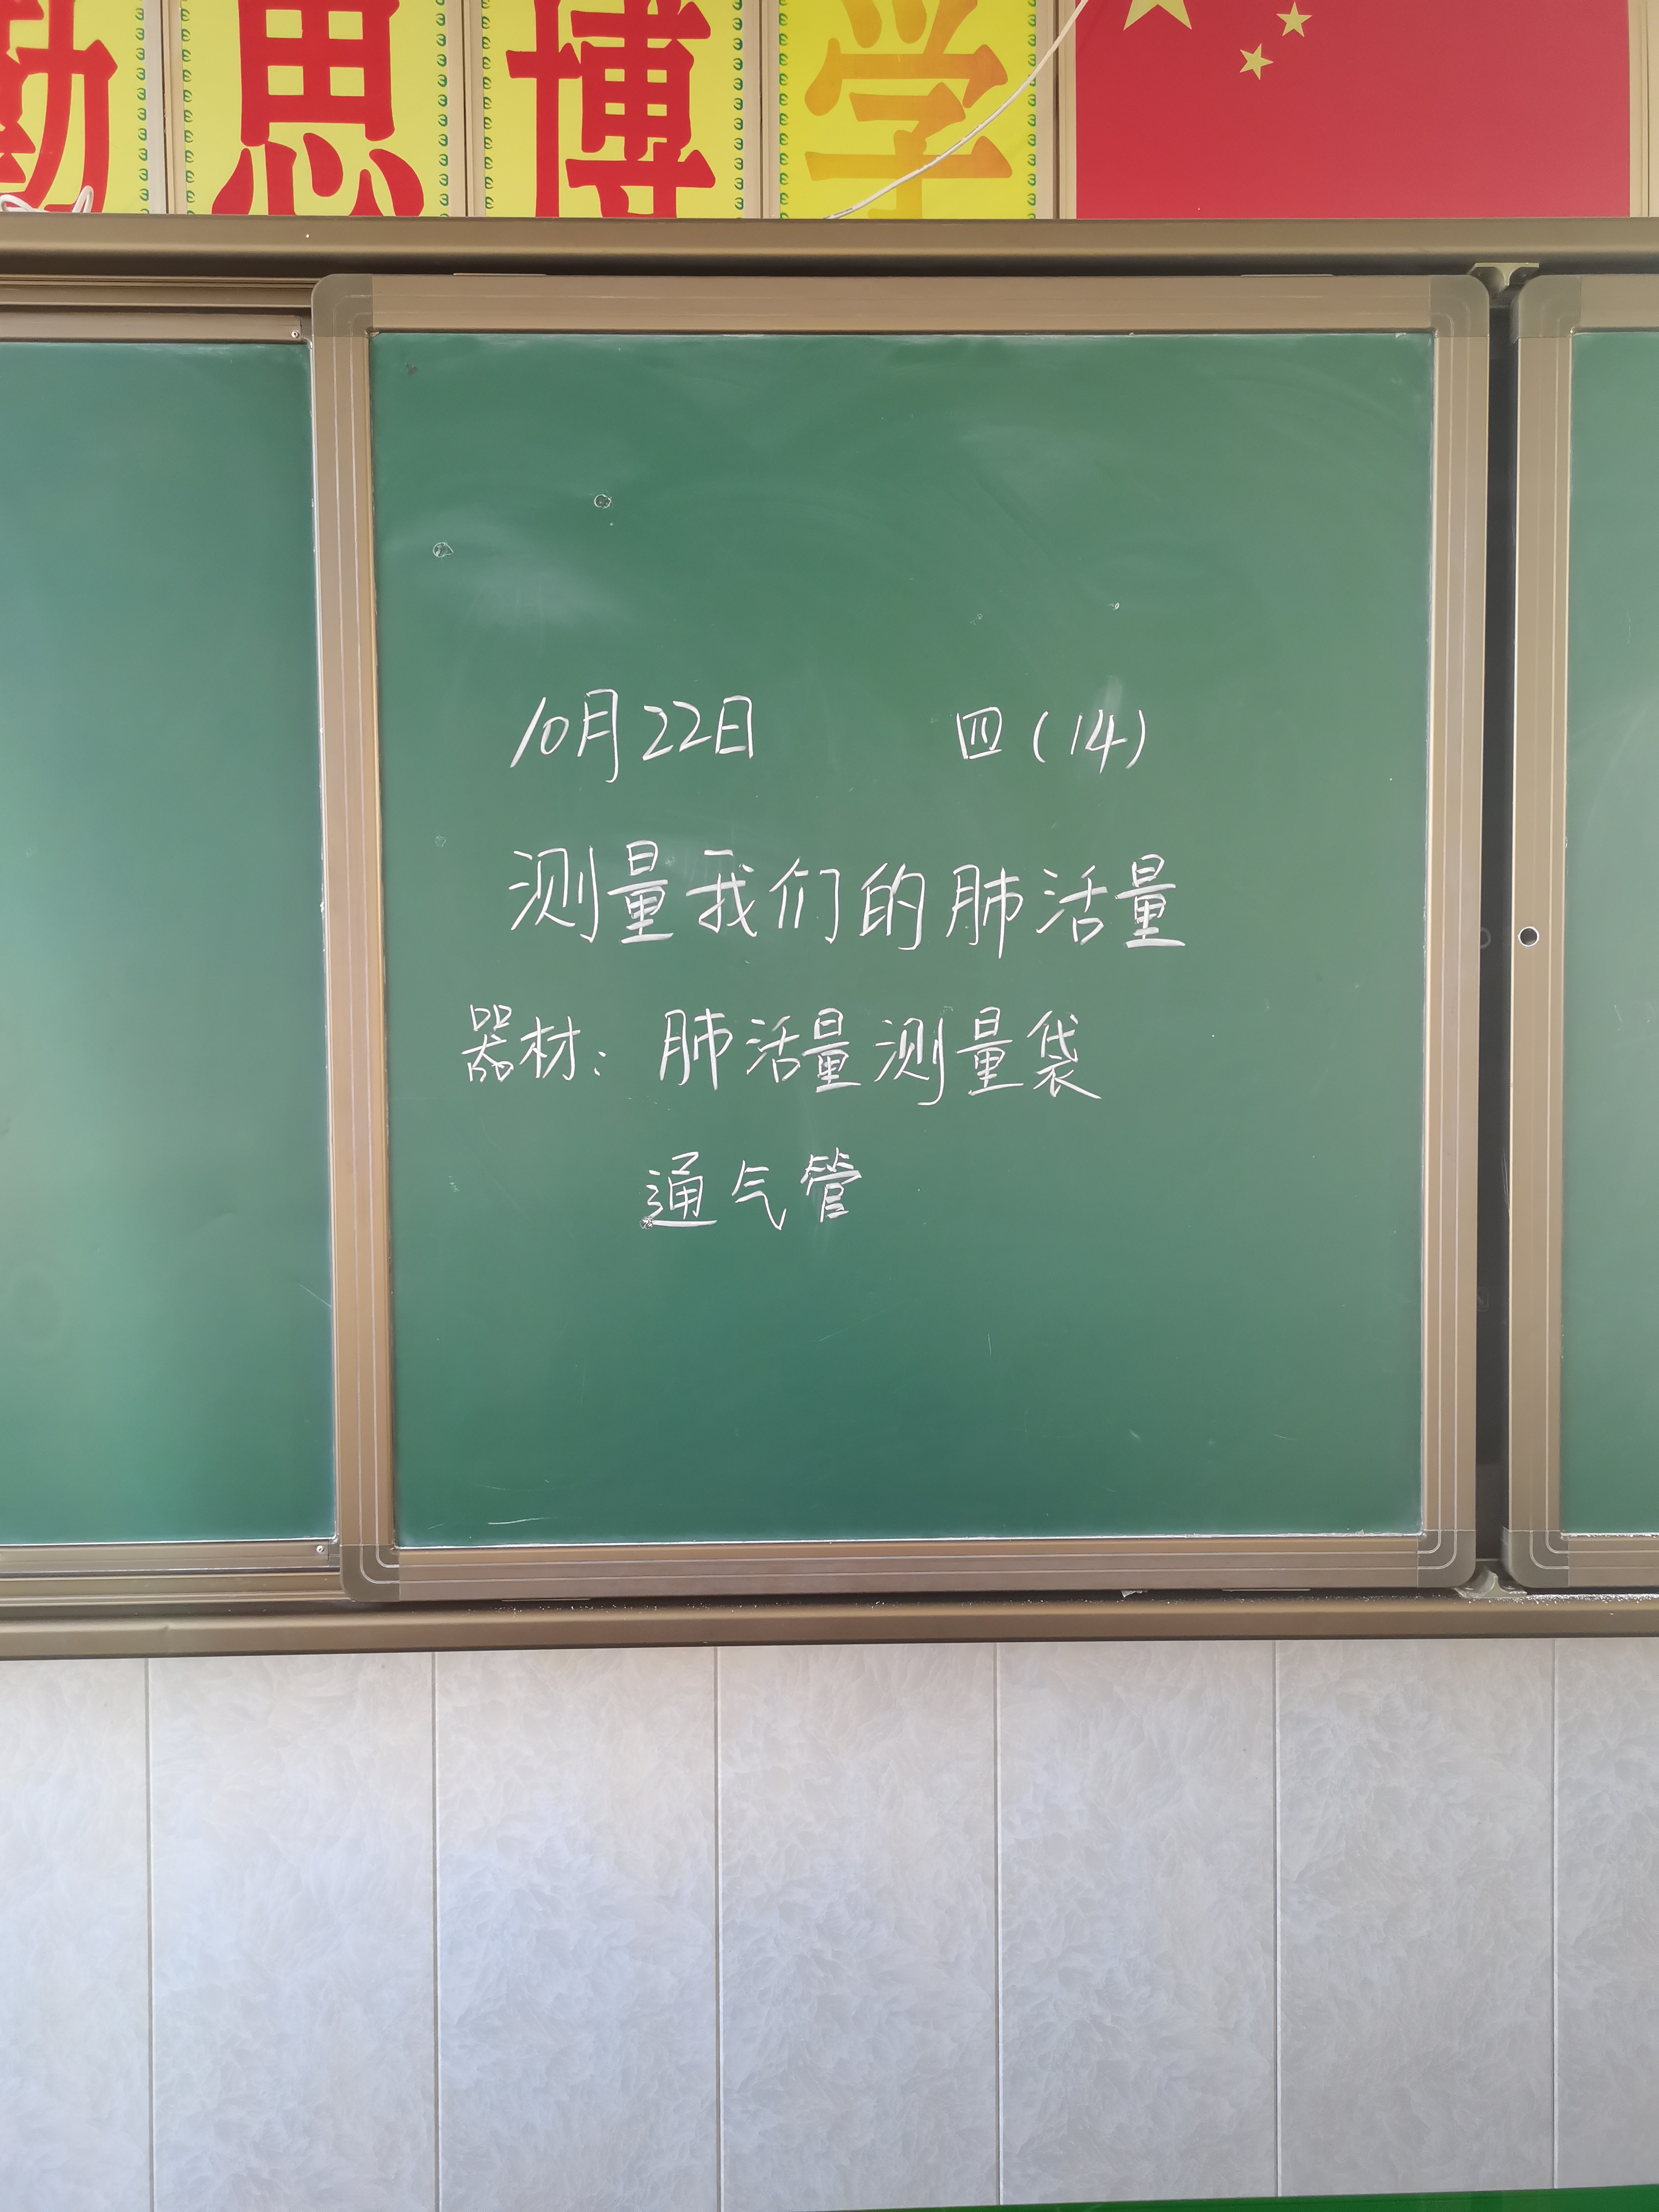 勤思博学
10月22日 四(14)
测量我们的肺活量
器材：肺活量测量袋
通气管